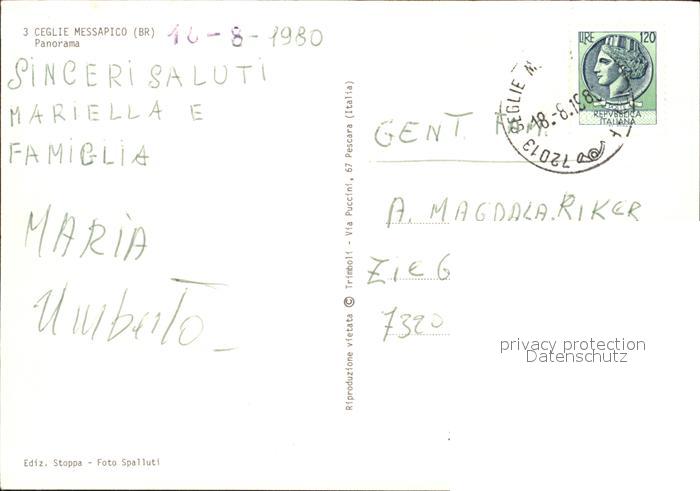 3 CEGLIE MESSAPICO (BR)
Panorama
12-8-1980
SINCERI SALUTI
MARIELLA E
FAMIGLIA
MARIA
Umberto
Ediz. Stoppa - Foto Spalluti
Riproduzione vietata © Trimboli - Via Puccini, 67 Pescara (Italia)
LIRE 120
REPVBBLICA
ITALIANA
72013 CEGLIE M.
18.-8.1980
GENT. FAM.
A. MAGDALA.RIKER
ZIEG
7320
privacy protection
Datenschutz